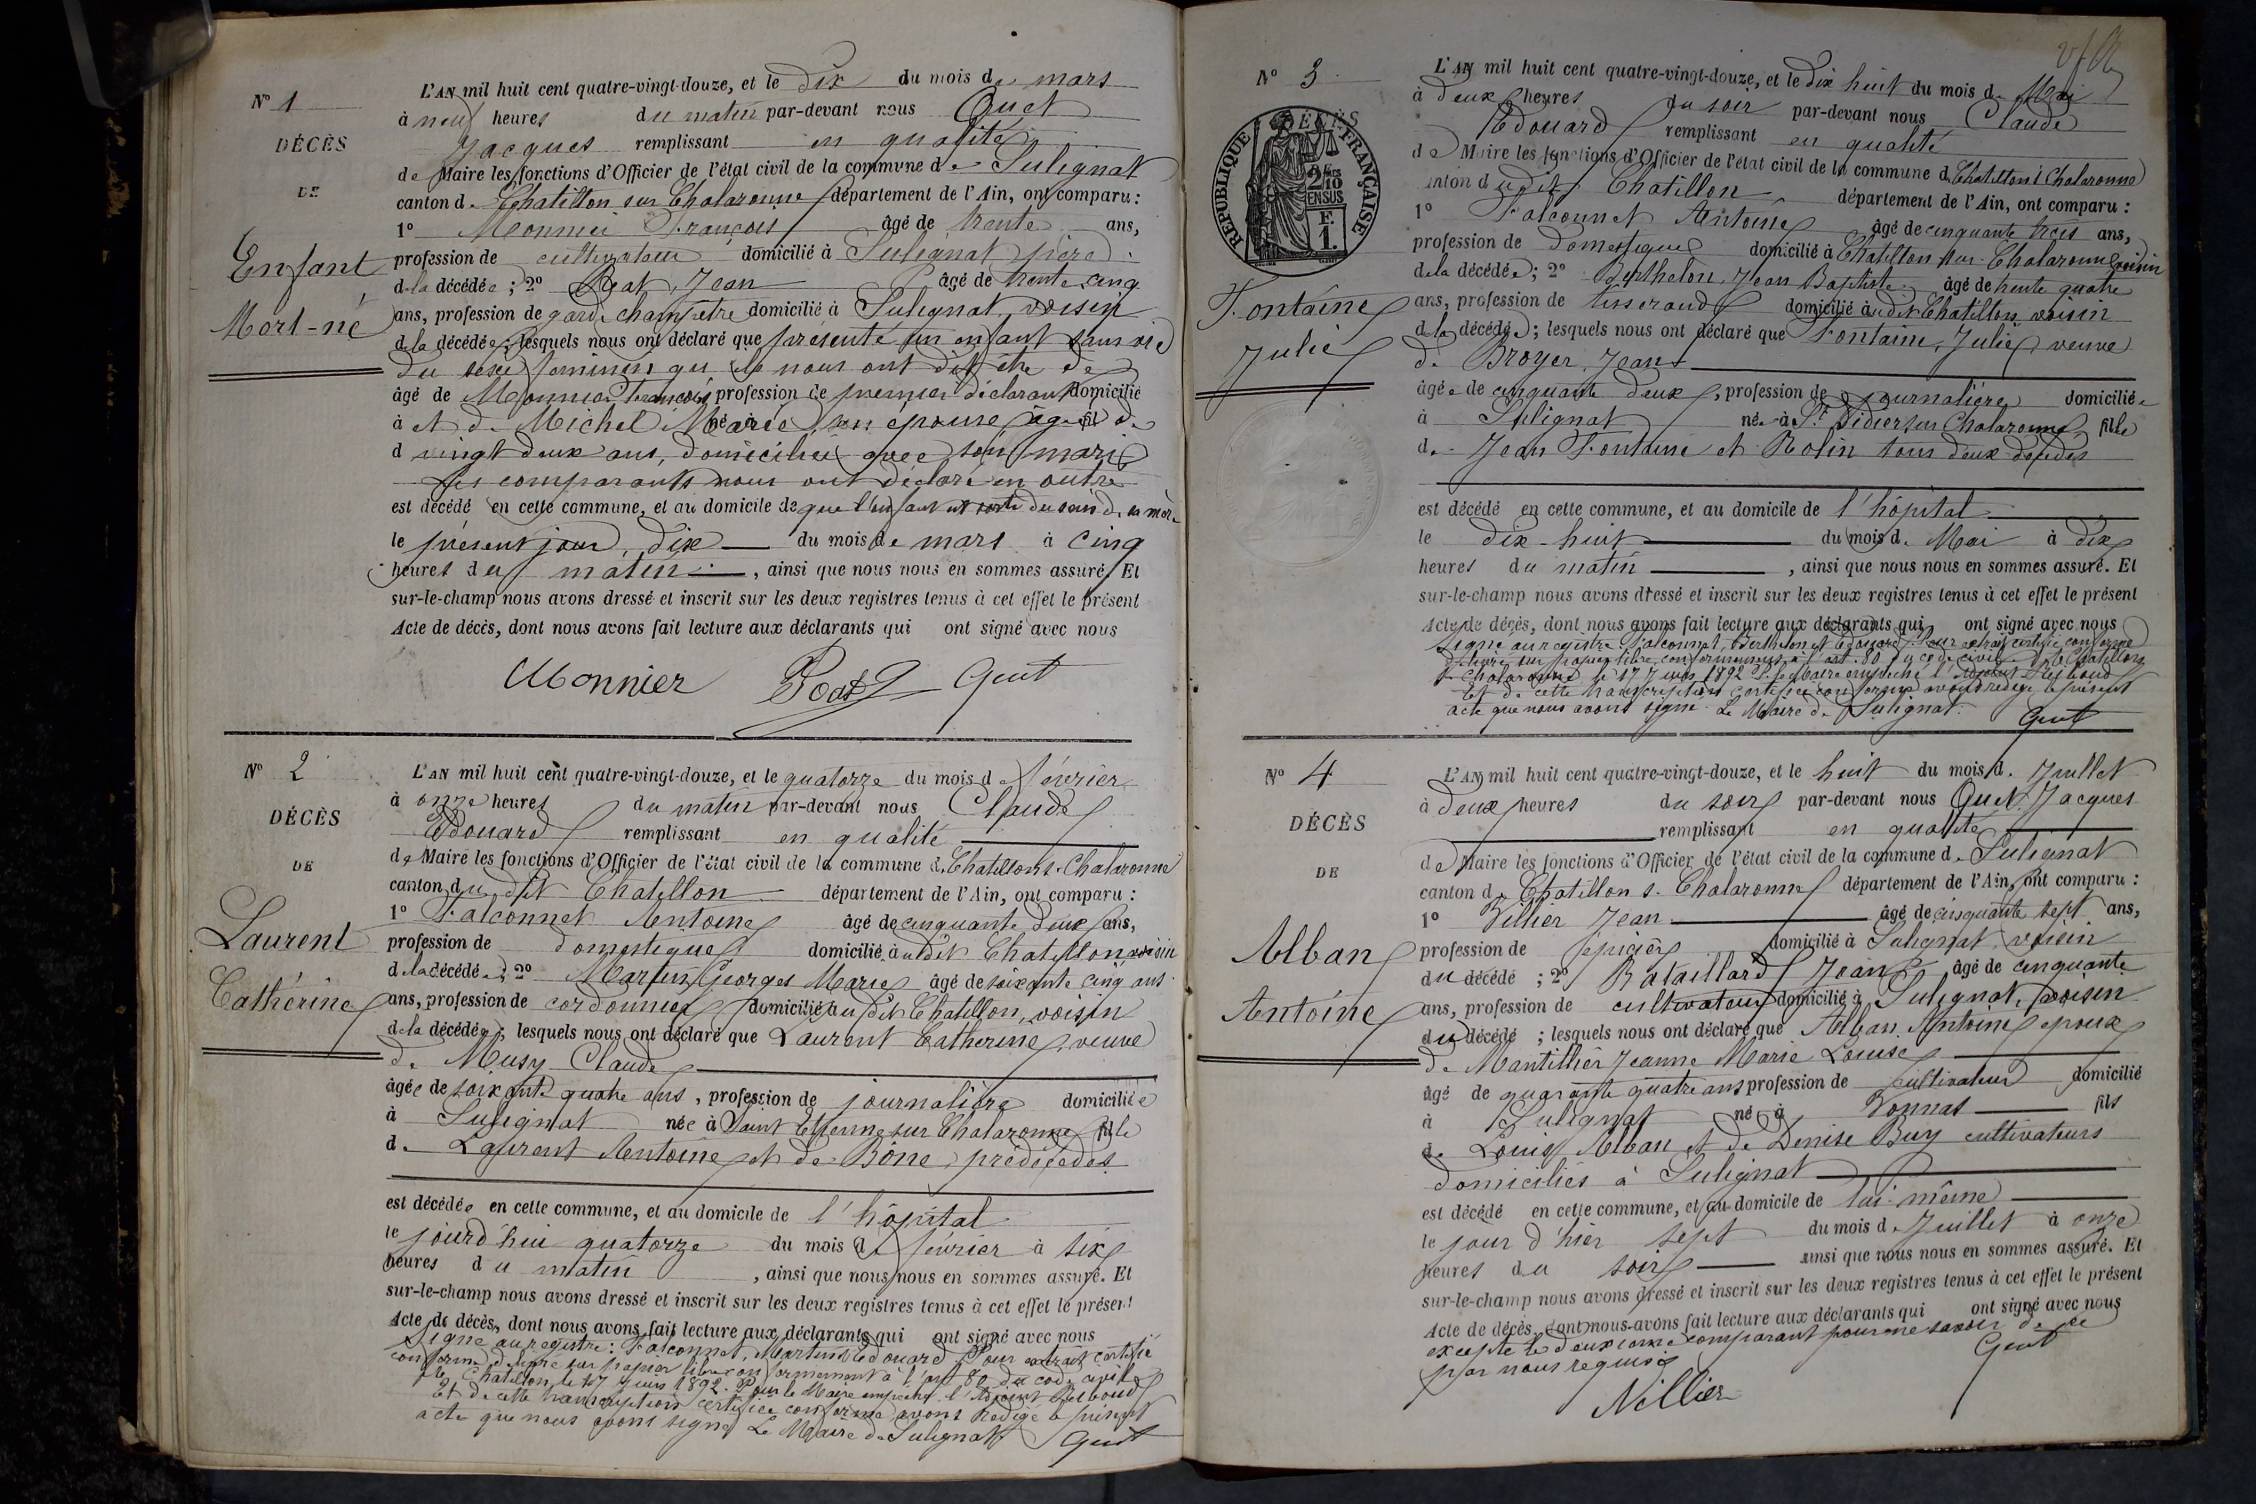 N° 1
DÉCÈS
DE
Enfant
Mort-né
L'AN mil huit cent quatre-vingt-douze, et le dix du mois de mars
à neuf heures du matin par-devant nous Quet
Jacques remplissant en qualité
de Maire les fonctions d'Officier de l'état civil de la commune de Sulignat
canton de Chatillon sur Chalaronne département de l'Ain, ont comparu :
1° Monnier François âgé de trente ans,
profession de cultivateur domicilié à Sulignat père
de la décédée ; 2° Jean âgé de trente cinq
ans, profession de garde champêtre domicilié à Sulignat, voisin
de la décédée ; lesquels nous ont déclaré que présenté un enfant sans vie
du sexe féminin qu'ils nous ont dit être de
âgé de Monnier François profession de premier déclarant domicilié
à et de Michel Marie né à son épouse âgée fil de
d vingt deux ans, domiciliée avec son mari
Les comparants nous ont déclaré en outre
est décédé en cette commune, et au domicile de que l'enfant est sorti du sein de sa mère
le présent jour, dix du mois de mars à cinq
heures du matin, ainsi que nous nous en sommes assuré. Et
sur-le-champ nous avons dressé et inscrit sur les deux registres tenus à cet effet le présent
Acte de décès, dont nous avons fait lecture aux déclarants qui ont signé avec nous
Monnier Quet
N° 2
DÉCÈS
DE
Laurent
Cathérine
L'AN mil huit cent quatre-vingt-douze, et le quatorze du mois de février
à onze heures du matin par-devant nous Claude
Edouard remplissant en qualité
de Maire les fonctions d'Officier de l'état civil de la commune de Chatillon s. Chalaronne
canton du dit Chatillon département de l'Ain, ont comparu :
1° Falconnet Antoine âgé de cinquante deux ans,
profession de domestique domicilié audit Chatillon voisin
de la décédée ; 2° Martin Georges Marie âgé de soixante cinq ans
ans, profession de cordonnier domicilié audit Chatillon, voisin
de la décédée ; lesquels nous ont déclaré que Laurent Catherine, veuve
de Musy Claude
âgée de soixante quatre ans, profession de journalière domiciliée
à Sulignat née à Saint Etienne sur Chalaronne fille
de Laurent Antoine et de Bône, prédécédés
est décédée en cette commune, et au domicile de l'hôpital
le jourd'hui quatorze du mois de février à six
heures du matin, ainsi que nous nous en sommes assuré. Et
sur-le-champ nous avons dressé et inscrit sur les deux registres tenus à cet effet le présent
Acte de décès, dont nous avons fait lecture aux déclarants qui ont signé avec nous
Signé au registre : Falconnet, Martin et Edouard. Pour extrait certifié
conforme délivré sur papier libre conformément à l'art 80 du code civil
Chatillon, le 17 Juin 1892. Pour le Maire empêché l'Adjoint
Et de cette transcription certifiée conforme avons rédigé le présent
acte que nous avons signé Le Maire de Sulignat Quet
N° 3
DÉCÈS
RÉPUBLIQUE FRANÇAISE
2/10 EN SUS
F.
1.
Fontaine
Julie
L'AN mil huit cent quatre-vingt-douze, et le dix huit du mois de Mai
à deux heures du soir par-devant nous Claude
Edouard remplissant en qualité
de Maire les fonctions d'Officier de l'état civil de la commune de Chatillon s Chalaronne
canton dudit Chatillon département de l'Ain, ont comparu :
1° Falconnet Antoine âgé de cinquante trois ans,
profession de domestique domicilié à Chatillon sur Chalaronne voisin
de la décédée ; 2° Berthelon, Jean Baptiste âgé de trente quatre
ans, profession de tisserand domicilié audit Chatillon voisin
de la décédée ; lesquels nous ont déclaré que Fontaine, Julie, veuve
de Broyer, Jean
âgée de cinquante deux, profession de journalière domiciliée
à Sulignat née à St Didier sur Chalaronne fille
de Jean Fontaine et Rolin tous deux décédés
est décédé en cette commune, et au domicile de l'hôpital
le dix-huit du mois de Mai à dix
heures du matin, ainsi que nous nous en sommes assuré. Et
sur-le-champ nous avons dressé et inscrit sur les deux registres tenus à cet effet le présent
Acte de décès, dont nous avons fait lecture aux déclarants qui ont signé avec nous
Signé au registre Falconnet, Berthelon et Edouard. Pour extrait certifié conforme
délivré sur papier libre conformément à l'art. 80 du code civil Chatillon
s. Chalaronne le 17 Juin 1892 P. le Maire empêché l'Adjoint
Et de cette transcription certifiée conforme avons rédigé le présent
acte que nous avons signé Le Maire de Sulignat. Quet
N° 4
DÉCÈS
DE
Alban
Antoine
L'AN mil huit cent quatre-vingt-douze, et le huit du mois de Juillet
à deux heures du soir par-devant nous Quet Jacques
remplissant en qualité
de Maire les fonctions d'Officier de l'état civil de la commune de Sulignat
canton de Chatillon s. Chalaronne département de l'Ain, ont comparu :
1° Villier Jean âgé de cinquante sept ans,
profession de épicier domicilié à Sulignat, voisin
du décédé ; 2° Bataillard Jean âgé de cinquante
ans, profession de cultivateur domicilié à Sulignat, voisin
du décédé ; lesquels nous ont déclaré que Alban Antoine époux
de Mantillier Jeanne Marie Louise
âgé de quarante quatre ans profession de cultivateur domicilié
à Sulignat né à Vonnas fils
de Louis Alban et de Denise Buy cultivateurs
domiciliés à Sulignat
est décédé en cette commune, et au domicile de lui-même
le jour d'hier sept du mois de Juillet à onze
heures du soir ainsi que nous nous en sommes assuré. Et
sur-le-champ nous avons dressé et inscrit sur les deux registres tenus à cet effet le présent
Acte de décès, dont nous avons fait lecture aux déclarants qui ont signé avec nous
excepté le deuxième comparant pour ne savoir de ce
par nous requis Quet
Villier